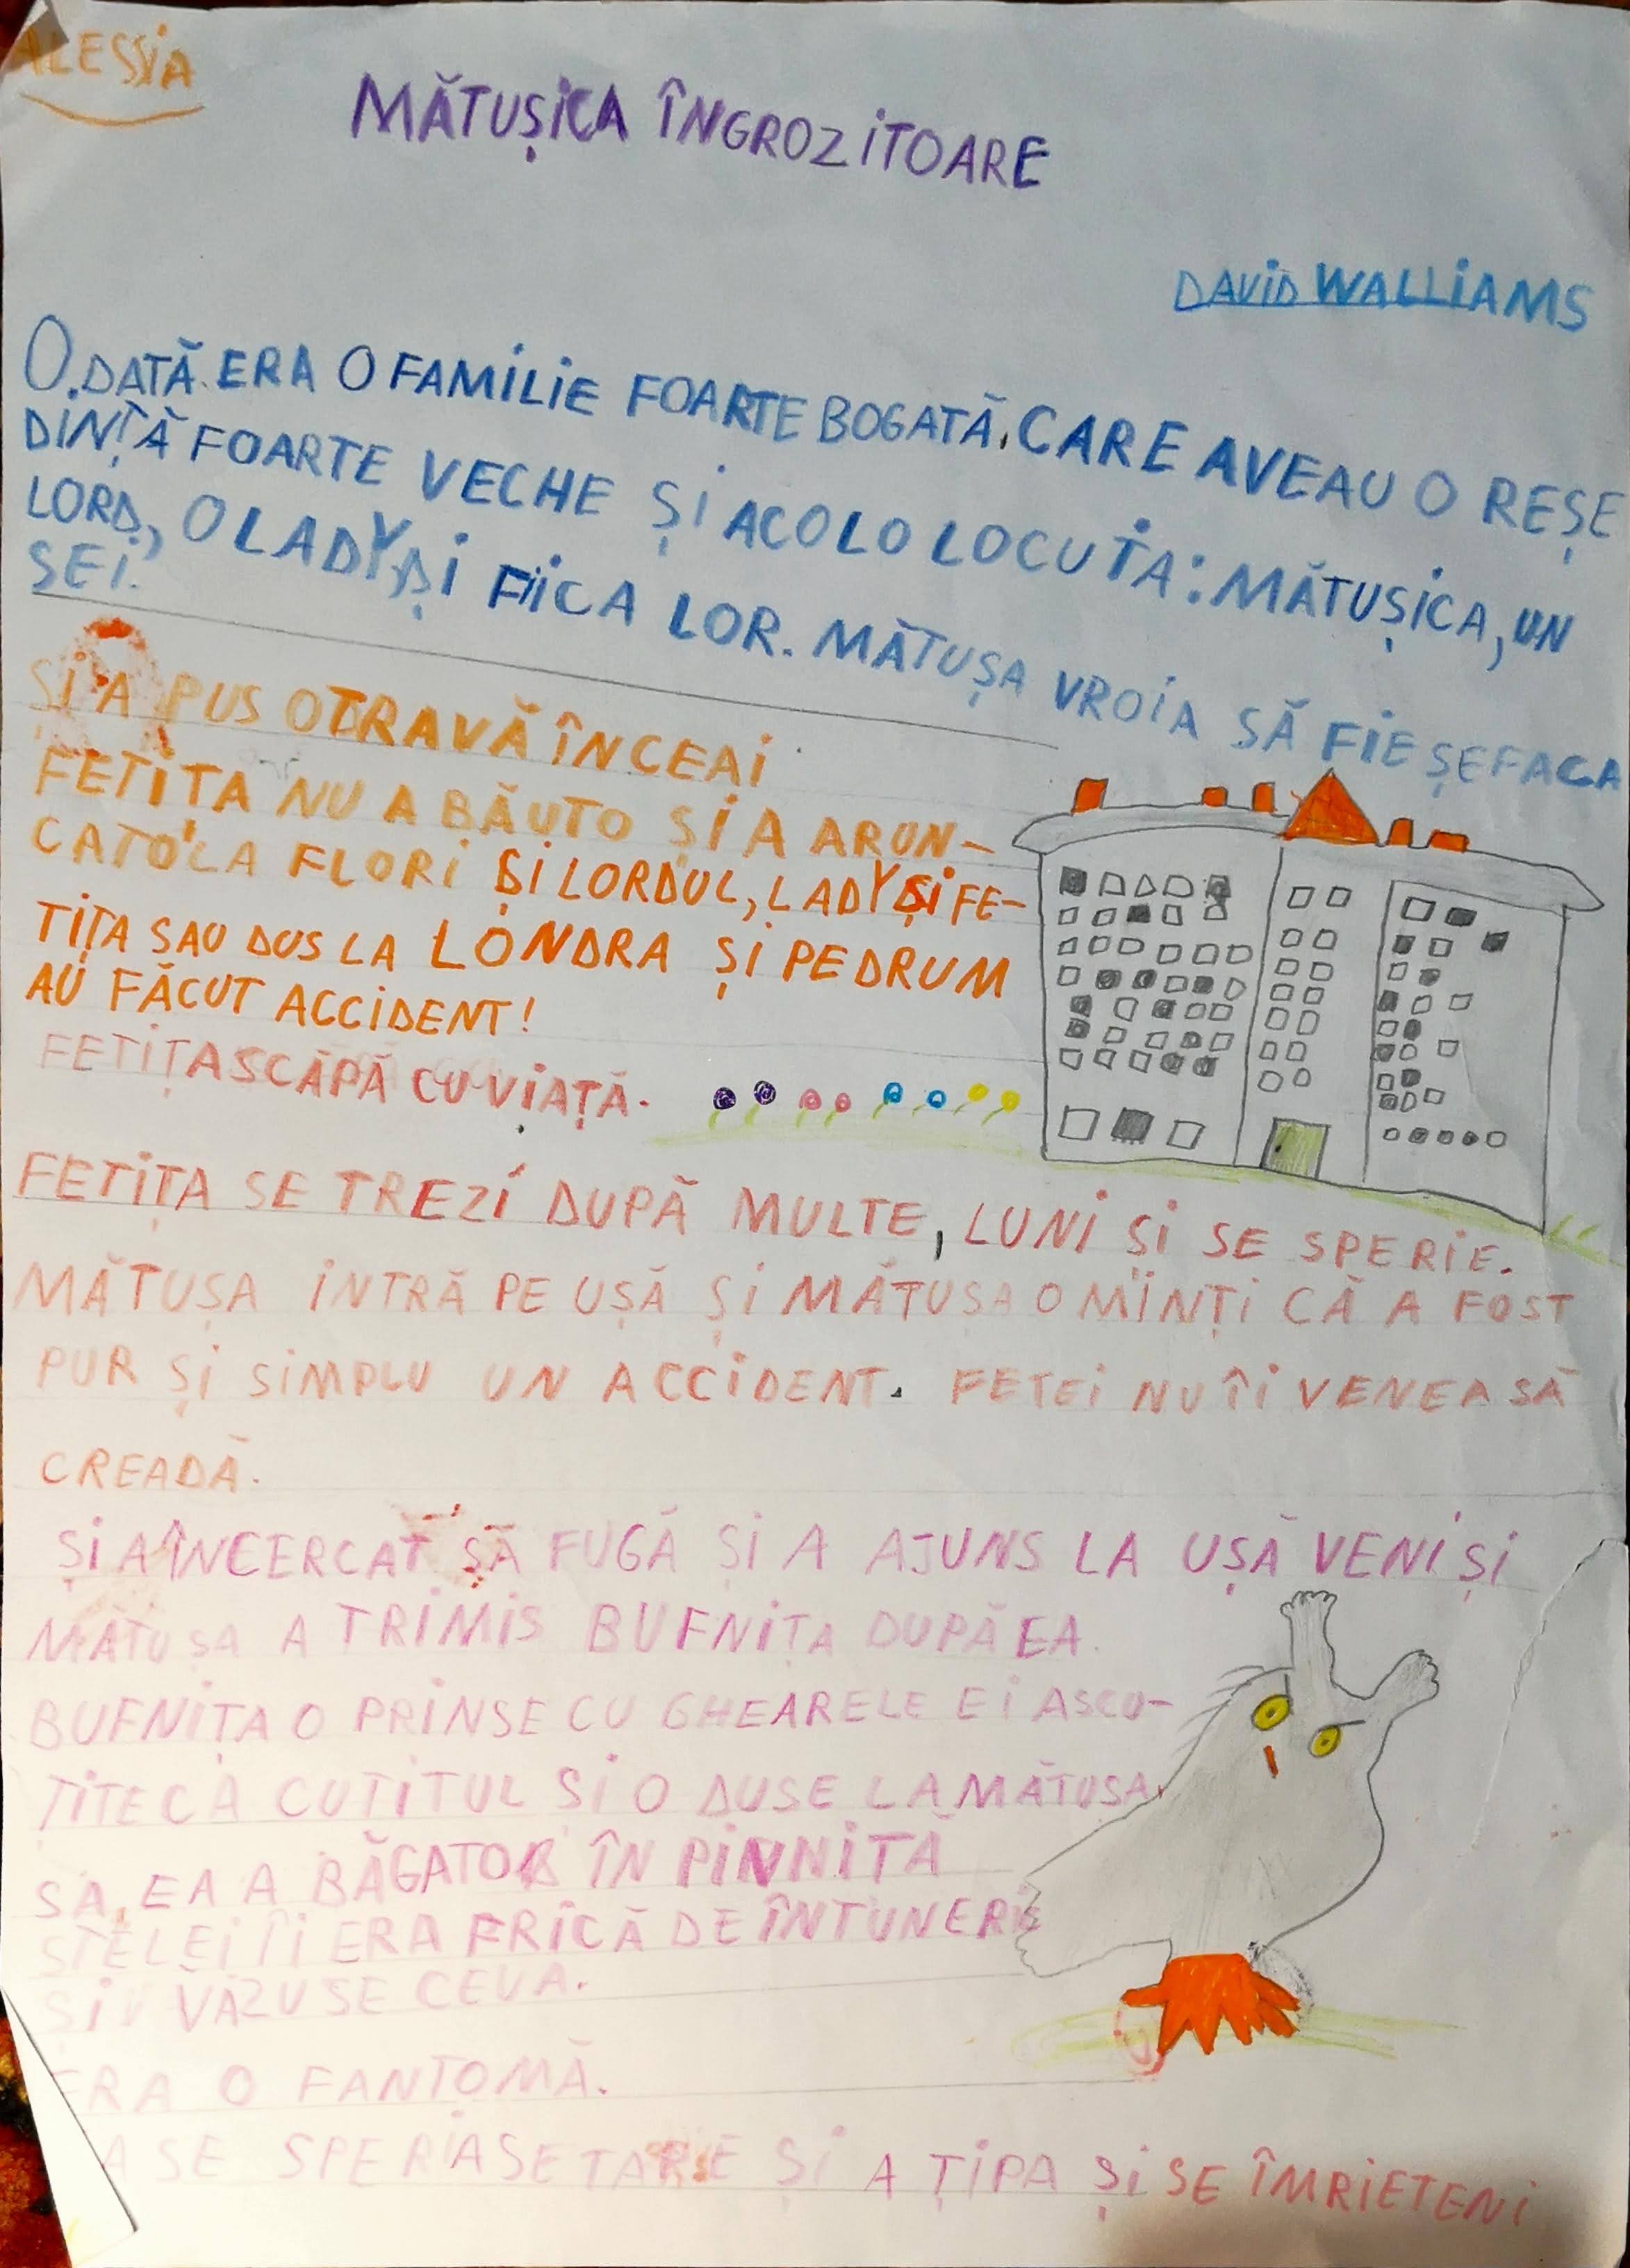 ALESSIA
MĂTUȘICA ÎNGROZITOARE
DAVID WALLIAMS
O.DATĂ ERA O FAMILIE FOARTE BOGATĂ. CARE AVEAU O REȘE
DINȚĂ FOARTE VECHE ȘI ACOLO LOCUIA: MĂTUȘICA, UN
LORD, O LADY ȘI FIICA LOR. MĂTUȘA VROIA SĂ FIE ȘEFA CA
SEI.
ȘI A PUS OTRAVĂ ÎN CEAI
FETIȚA NU A BĂUTO ȘI A ARUN-
CATO LA FLORI ȘI LORDUL, LADY ȘI FE-
TIȚA SAU DUS LA LONDRA ȘI PE DRUM
AU FĂCUT ACCIDENT!
FETIȚA SCĂPĂ CU VIAȚĂ.
FETIȚA SE TREZI DUPĂ MULTE, LUNI ȘI SE SPERIE.
MĂTUȘA INTRĂ PE UȘĂ ȘI MĂTUȘA O MINȚI CĂ A FOST
PUR ȘI SIMPLU UN ACCIDENT. FETEI NU ÎI VENEA SĂ
CREADĂ.
ȘI A ÎNCERCAT SĂ FUGĂ ȘI A AJUNS LA UȘĂ VENI ȘI
MĂTUȘA A TRIMIS BUFNIȚA DUPĂ EA.
BUFNIȚA O PRINSE CU GHEARELE EI ASCU-
ȚITE CA CUȚITUL ȘI O DUSE LA MĂTUȘA
SA, EA A BĂGATO ÎN PINNIȚĂ
STELEI ÎI ERA FRICĂ DE ÎNTUNERI
ȘI VĂZUSE CEVA.
ERA O FANTOMĂ.
SE SPERIASE TARE ȘI A ȚIPA ȘI SE ÎMRIETENI